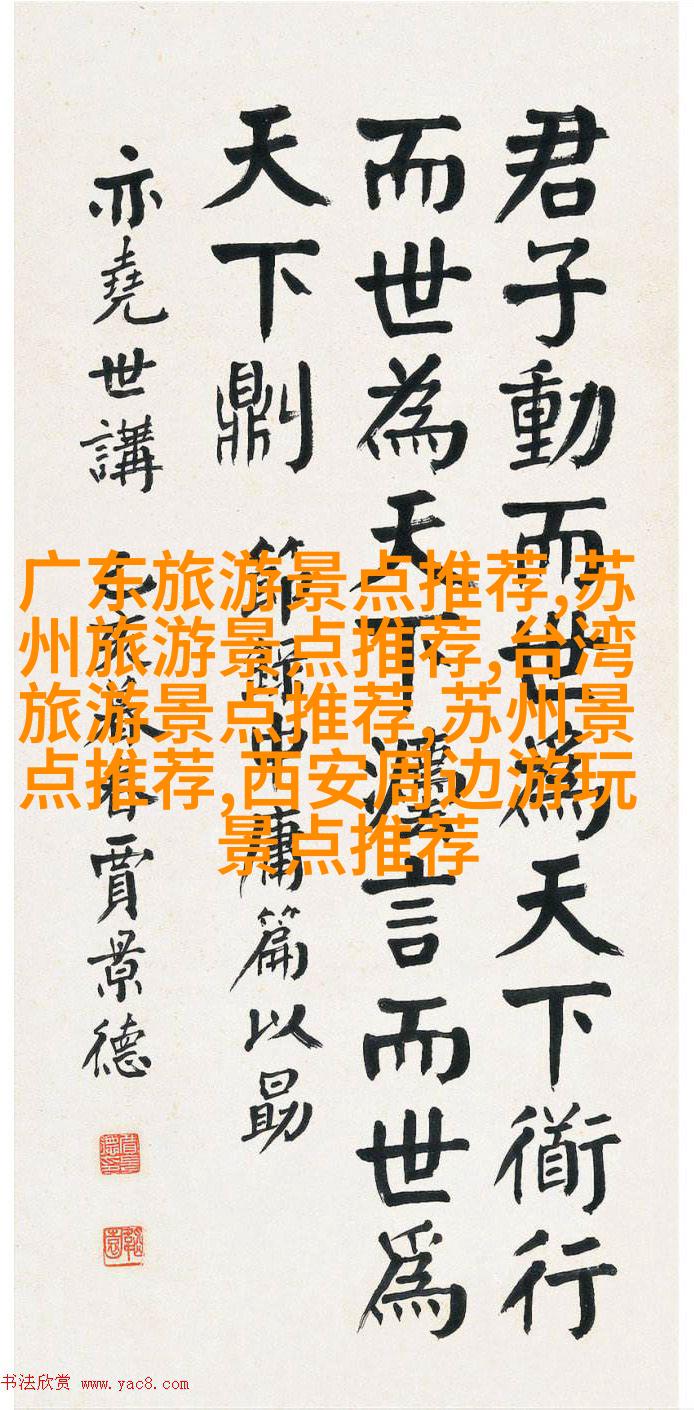 君子動而世為天下衜行
而世為天下灋言而世為
天下
節錄中庸篇以勗
亦堯世講
春賈景德
广东旅游景点推荐,苏
州旅游景点推荐,台湾
旅游景点推荐,苏州景
点推荐,西安周边游玩
景点推荐
书法欣赏 www.yac8.com